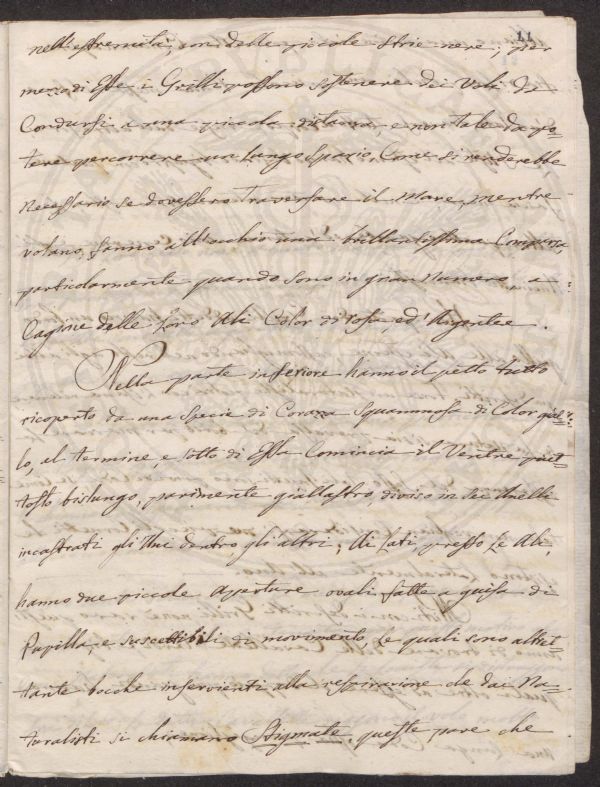 11
nell'estremità, con delle piccole strie nere; per
mezzo di Esse i Grilli possono sostenere dei Voli di
Condursi a una piccola distanza, e non tale da po-
tere percorrere un Lungo Spazio, Come si renderebbe
necessario se dovessero Traversare il Mare, mentre
volano, fanno all'occhio una brillantissima Comparsa,
particolarmente quando sono in gran numero a
Cagione delle Loro Ali Color di rosa, ed' Argentee.
Nella parte inferiore hanno il petto tutto
ricoperto da una Specie di Corazza Squammosa di Color gial-
lo, al termine, e sotto di Essa Comincia il Ventre piut-
tosto bislungo, parimente giallastro, diviso in sei Anelli
incastrati gli Uni dentro gli altri; Ai Lati, presso Le Ali,
hanno due piccole aperture ovali fatte a guisa di
Pupilla, e suscettibili di movimento Le quali sono altret-
tante bocche inservienti alla respirazione che dai Na-
turalisti si chiamano Stigmate, queste pare che